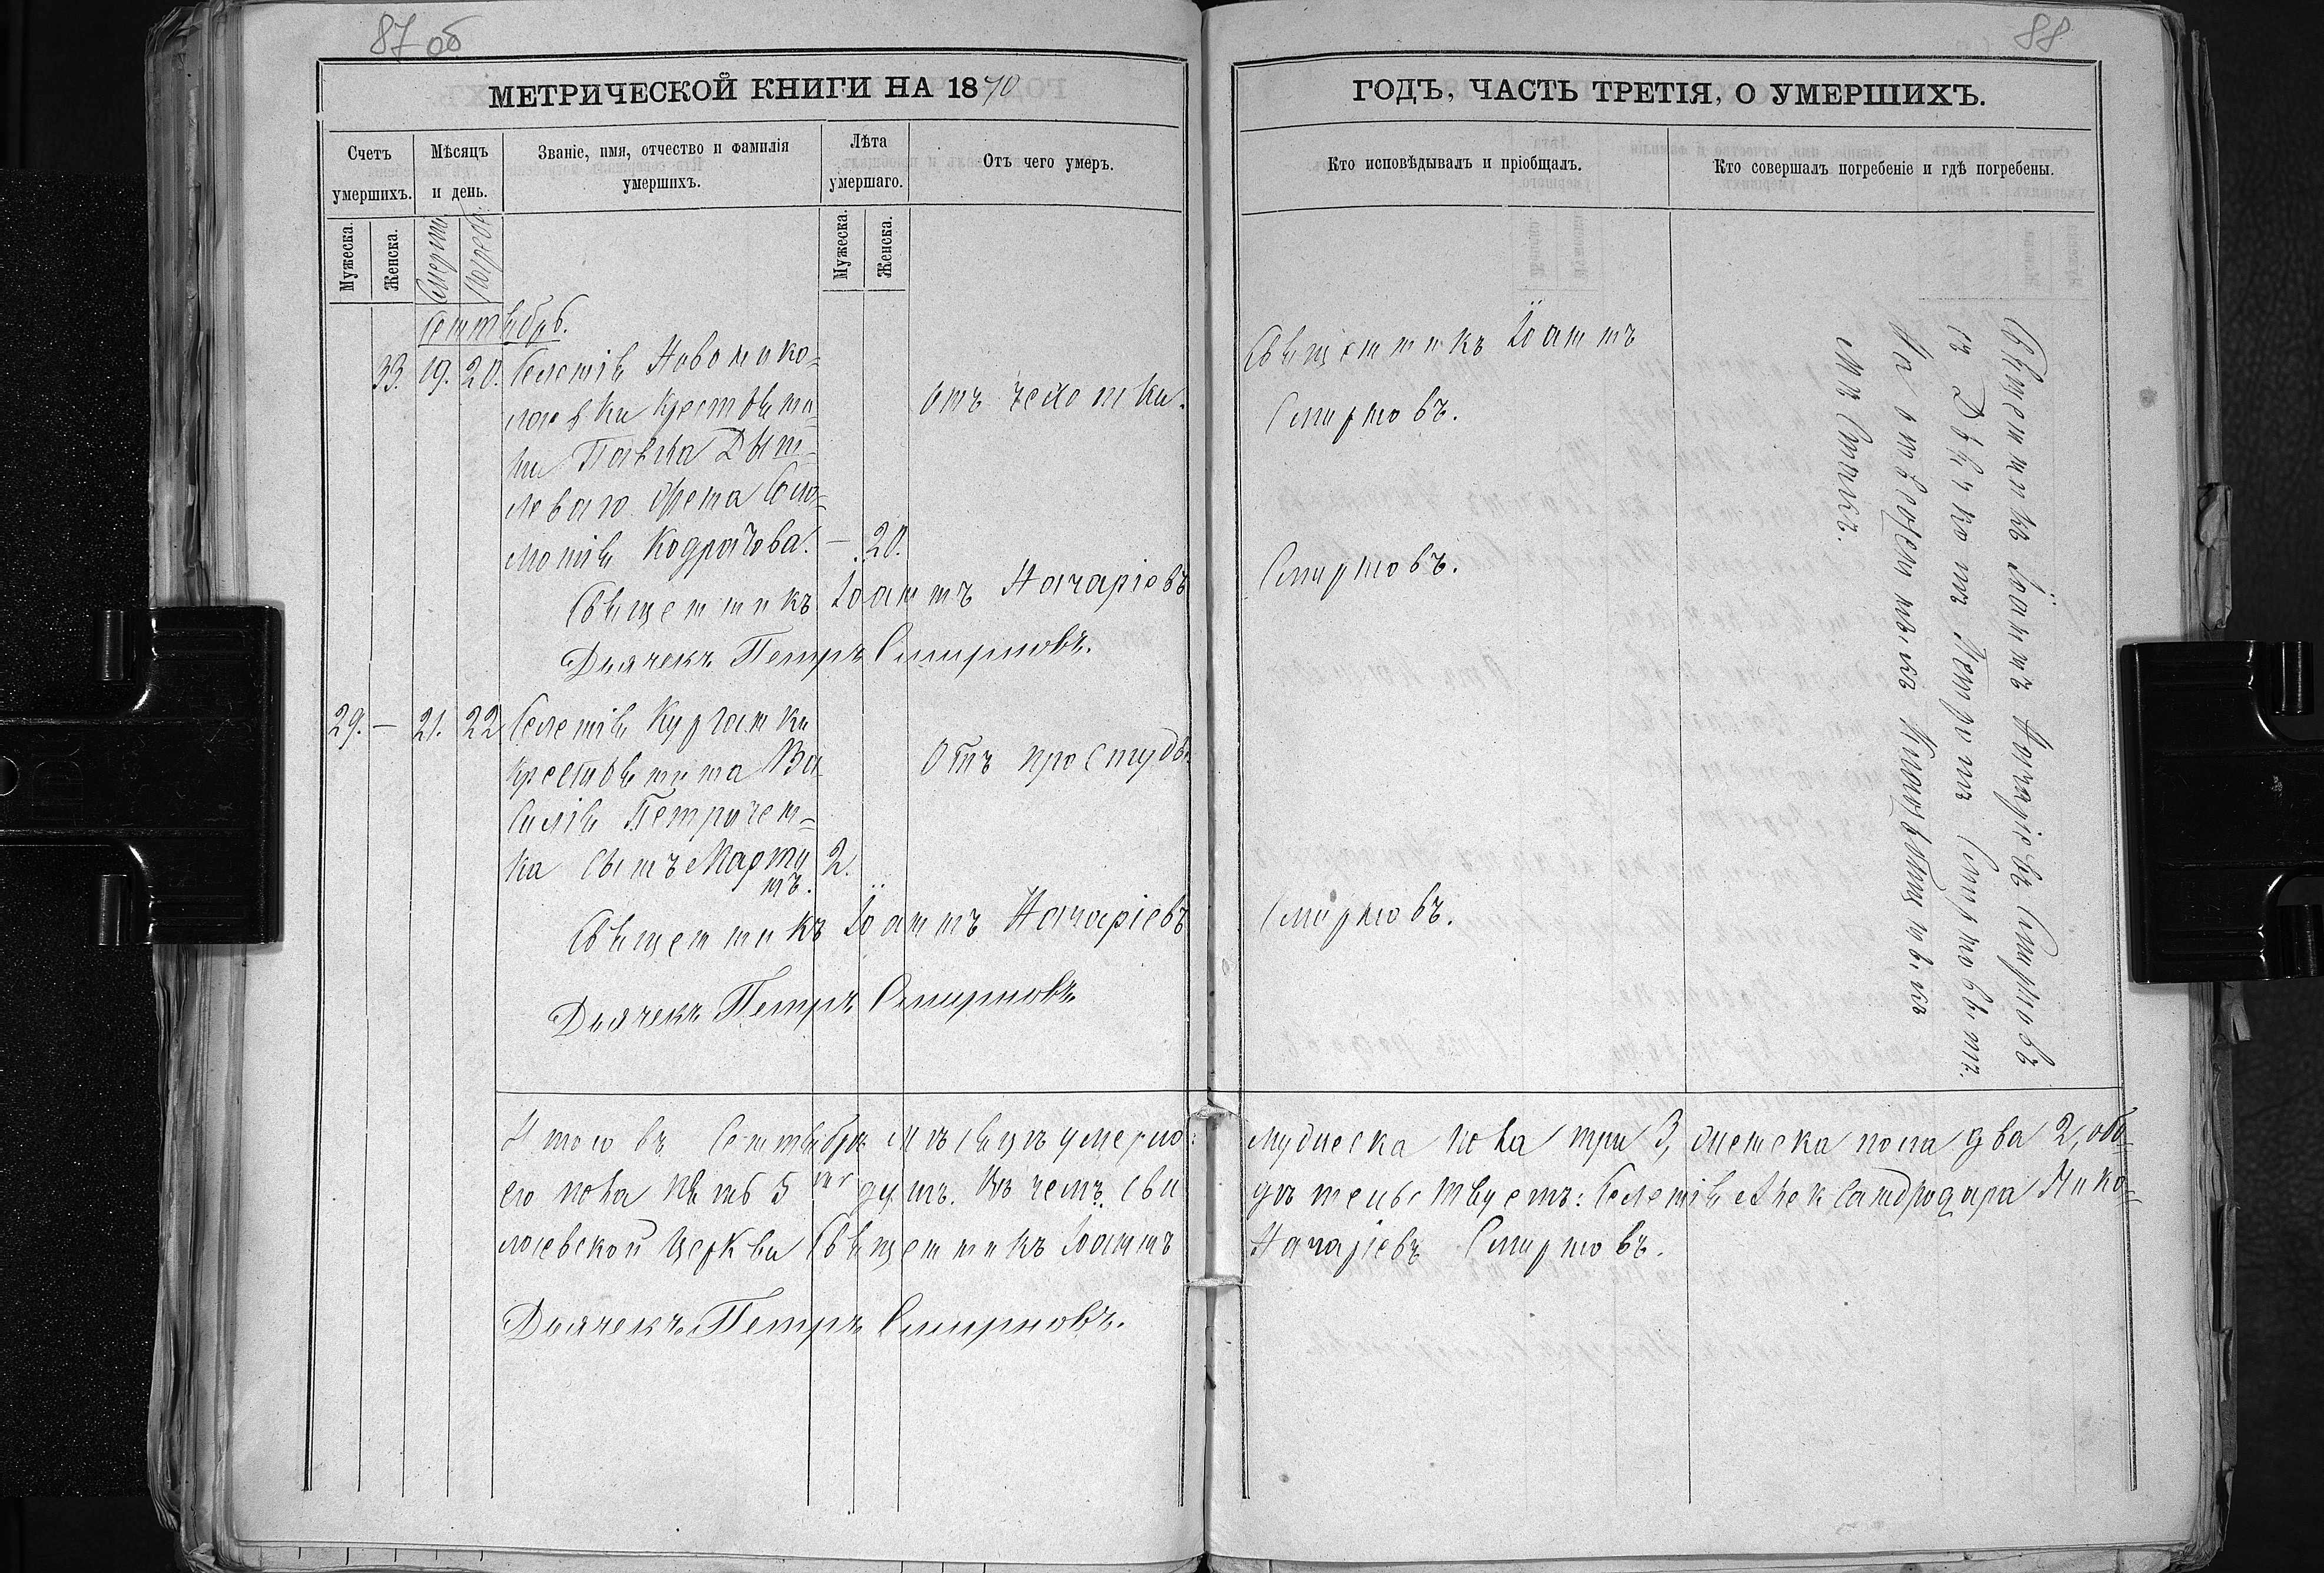 87 об
МЕТРИЧЕСКОЙ КНИГИ НА 1870
Счетъ умершихъ.
Мѣсяцъ и день.
Званіе, имя, отчество и фамилія умершихъ.
Лѣта умершаго.
Отъ чего умеръ.
Мужеска.
Женска.
Смерти
Погреб.
Мужеска.
Женска.
Сентябрь.
33. 19. 20. Селенія Новонико-
лаевки крестьяни-
на Павла
жена Соло-
монія Кодратова. — 20.
отъ чахотки.
Священникъ Іоаннъ Назаріевъ
Дьячекъ Петръ Смирновъ.
29. — 21. 22. Селенія Курганки
крестьянина Ва-
силія Петричен-
ка сынъ Марти
нъ. 2.
Отъ простуды
Священникъ Іоаннъ Назаріевъ
Дьячекъ Петръ Смирновъ.
Итого въ Сентябрѣ мѣсяцѣ умерло:
его пола пять 5 ть душъ. Въ чемъ сви
лаевской церкви Священникъ Іоаннъ
Дьячекъ Петръ Смирновъ.
88
ГОДЪ, ЧАСТЬ ТРЕТІЯ, О УМЕРШИХЪ.
Кто исповѣдывалъ и пріобщалъ.
Кто совершалъ погребеніе и гдѣ погребены.
Священникъ Іоаннъ
Смирновъ.
Смирновъ.
Смирновъ.
Священникъ Іоаннъ Назаріевъ Смирновъ
съ Дьячкомъ Петромъ Смирновымъ.
На отведенныхъ
мѣстахъ.
мужеска пола три 3, женска пола два 2, обо-
дѣтельствуетъ: Селенія Александродара Нико-
Назаріевъ Смирновъ.